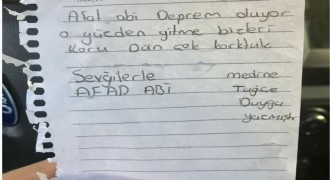 Afat abi Deprem oluyor
o yüzden gitme bizleri
koru Dan çok korktuk
Sevgilerle medine
AFAD ABİ Tuğçe
Duygu
yazmıştır